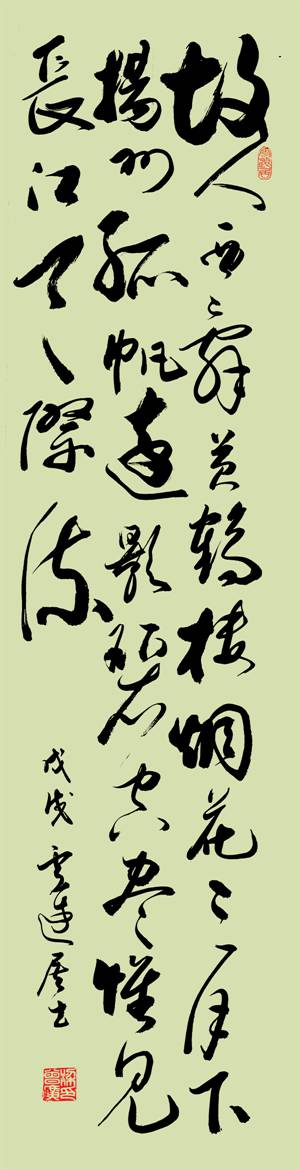 故人西辞黄鶴楼烟花三月下
揚州孤帆遠影碧空尽惟見
長江天際流
戊戌居士